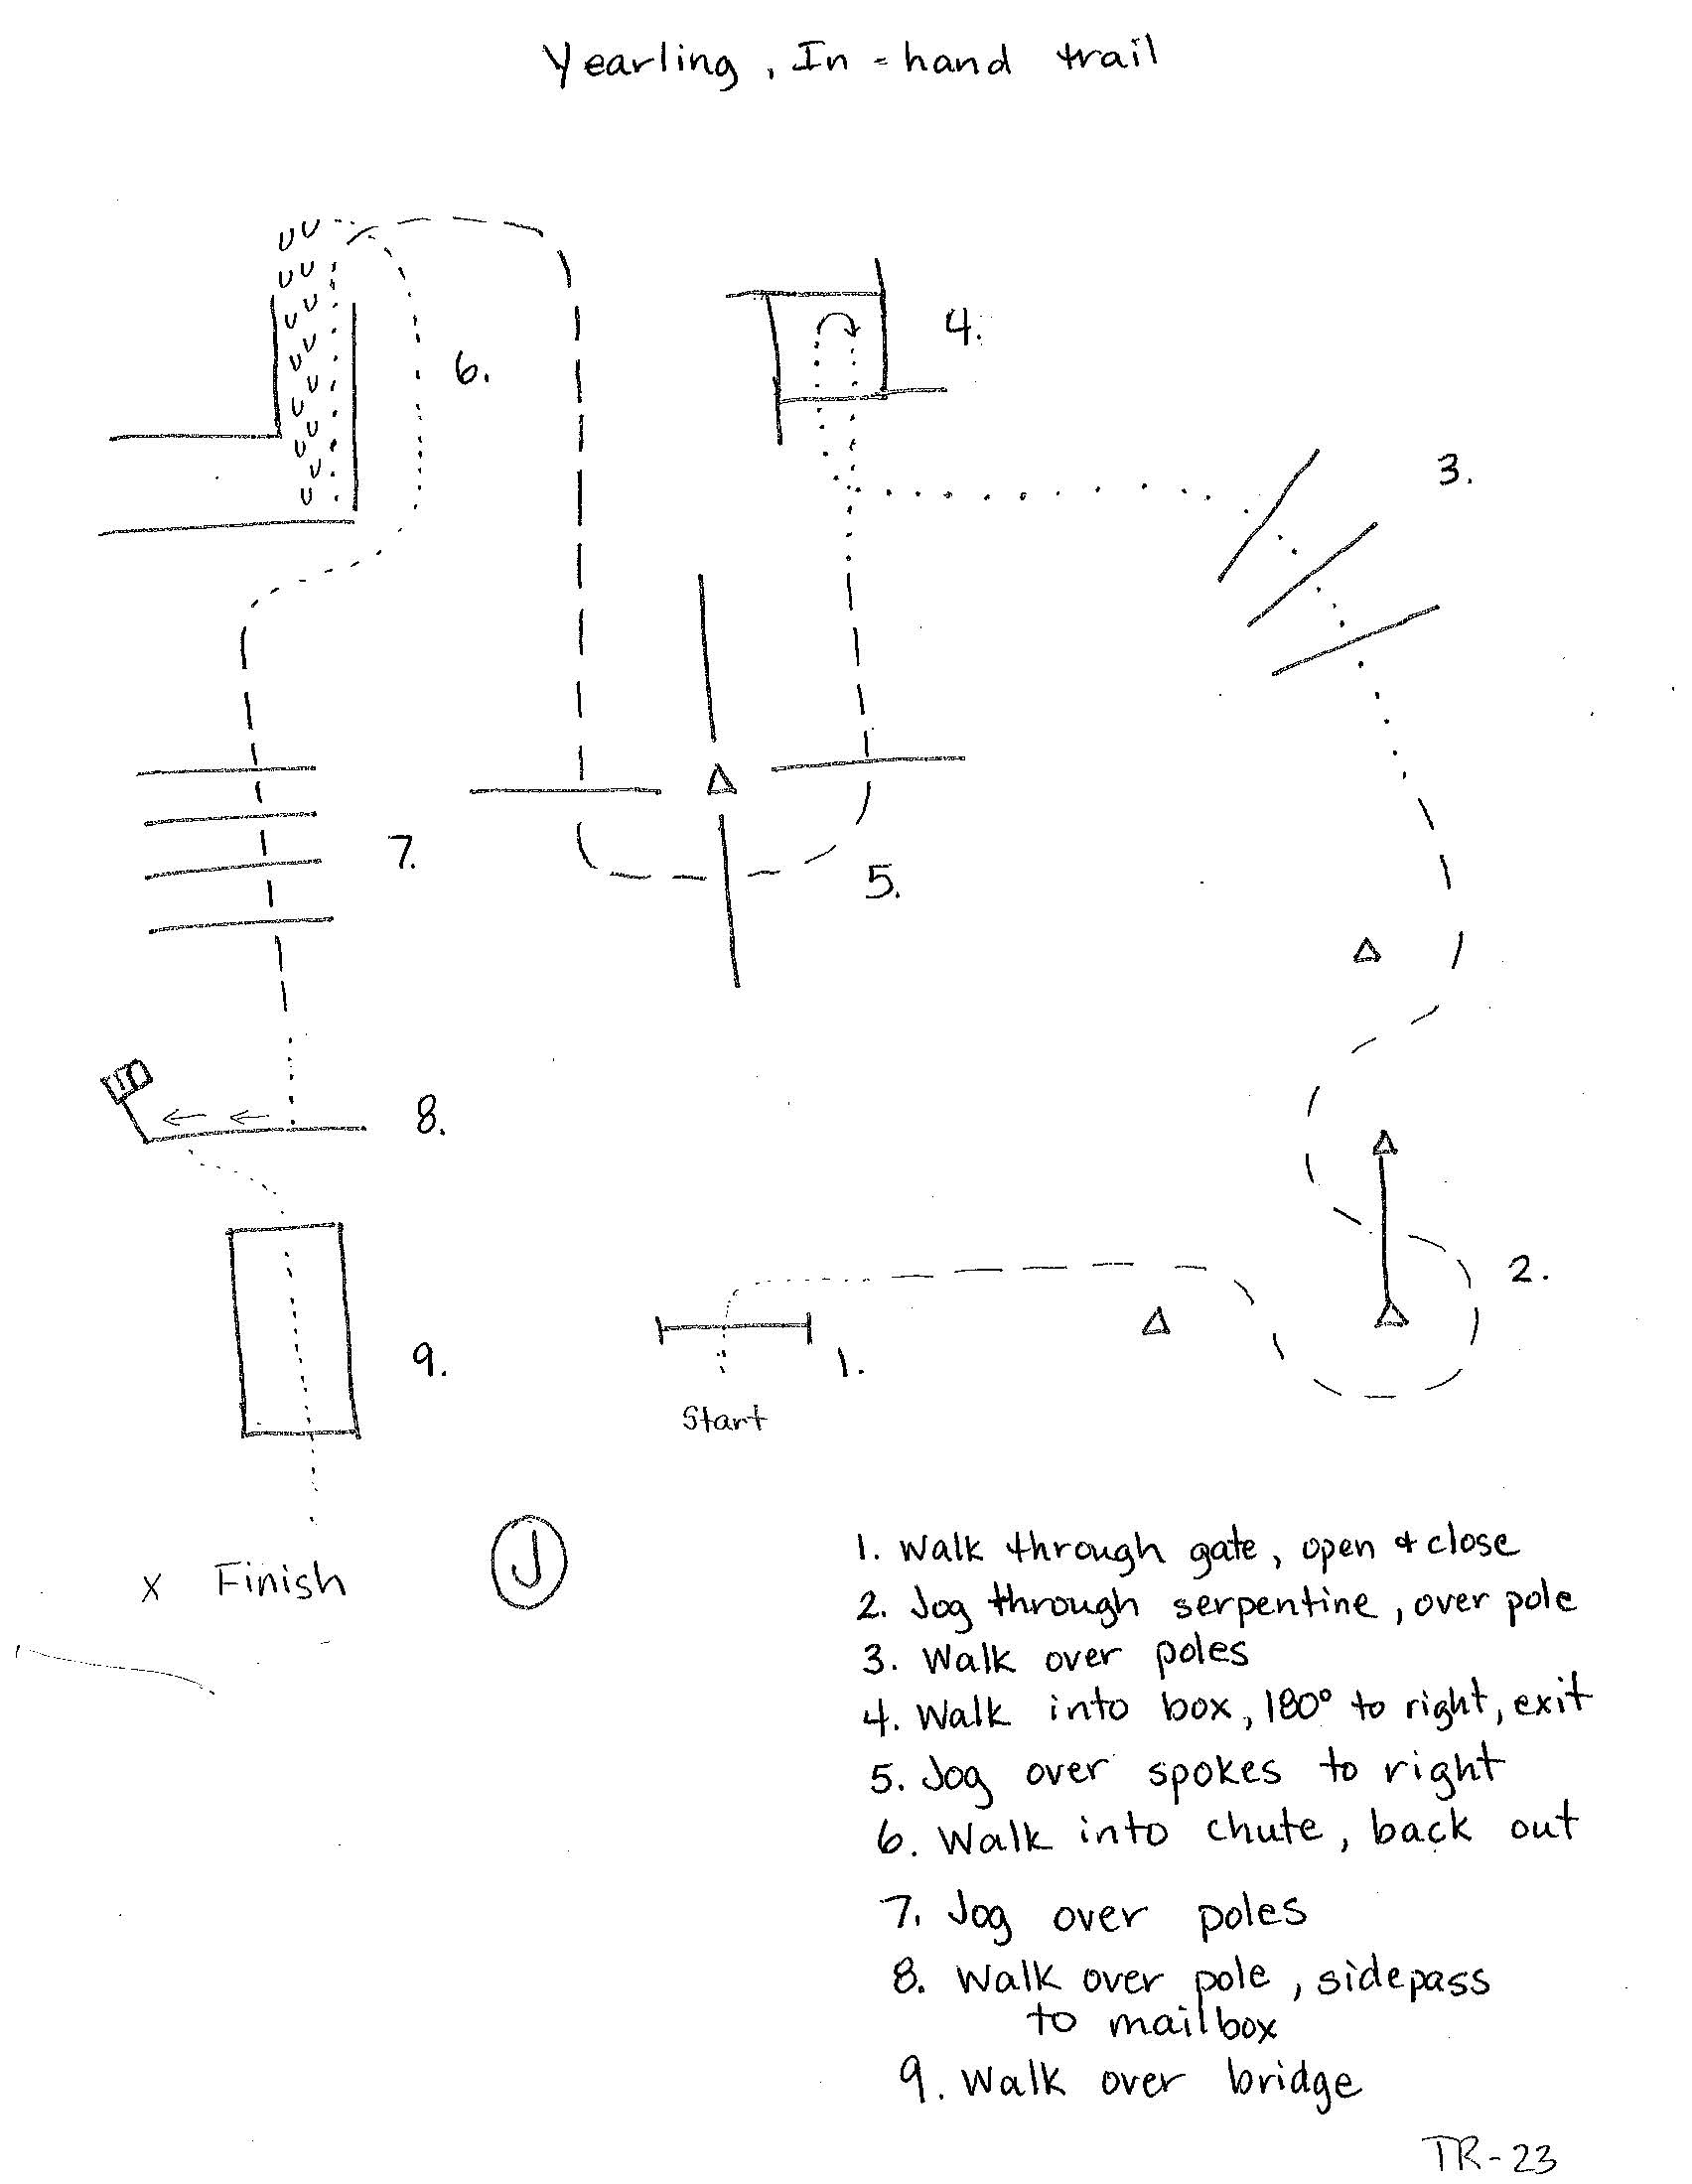 Yearling, In-hand trail
4.
6.
3.
7.
5.
8.
2.
9.
1.
Start
J
x Finish
1. Walk through gate, open & close
2. Jog through serpentine, over pole
3. Walk over poles
4. Walk into box, 180° to right, exit
5. Jog over spokes to right
6. Walk into chute, back out
7. Jog over poles
8. Walk over pole, sidepass
to mailbox
9. Walk over bridge
TR-23